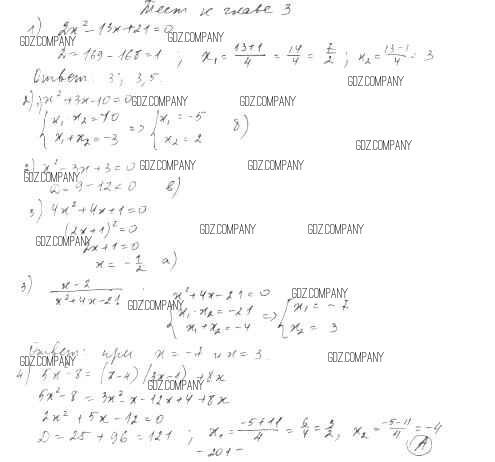 Тест к главе 3
1) 2x² - 13x + 21 = 0
GDZ.COMPANY GDZ.COMPANY
D = 169 - 168 = 1 ; x₁ = (13+1)/4 = 14/4 = 7/2 ; x₂ = (13-1)/4 = 3
Ответ: 3; 3,5.
GDZ.COMPANY
2) x² + 3x - 10 = 0 GDZ.COMPANY GDZ.COMPANY
{ x₁ x₂ = -10 => { x₁ = -5
x₁ + x₂ = -3 x₂ = 2 б)
GDZ.COMPANY
2) x² - 3x + 3 = 0 GDZ.COMPANY GDZ.COMPANY
GDZ.COMPANY
D = 9 - 12 < 0 в)
3) 4x² + 4x + 1 = 0
(2x + 1)² = 0 GDZ.COMPANY GDZ.COMPANY
GDZ.COMPANY
2x + 1 = 0
x = -1/2 а)
3) (x - 2)/(x² + 4x - 21) ; x² + 4x - 21 = 0 GDZ.COMPANY
GDZ.COMPANY
{ x₁·x₂ = -21 => { x₁ = -7
x₁ + x₂ = -4 x₂ = 3
Ответ: при x = -7 и x = 3.
GDZ.COMPANY GDZ.COMPANY
4) 5x - 8 = (x - 4)(3x - 1) + 8x
GDZ.COMPANY
5x - 8 = 3x² - x - 12x + 4 + 8x
2x² + 5x - 12 = 0
D = 25 + 96 = 121 ; x₁ = (-5+11)/4 = 6/4 = 3/2 , x₂ = (-5-11)/4 = -4
А
- 201 -